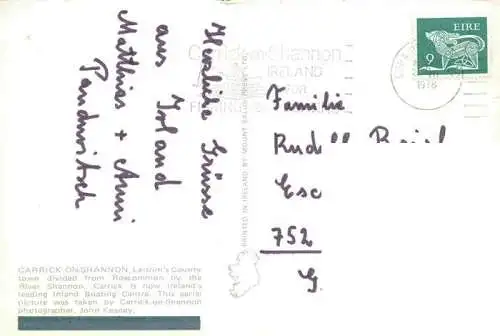 Herzliche Grüsse
aus Irland
Matthias + Anni
Carrick-on-Shannon
IRELAND
FOR
EIRE
9
1976
Familie
Rudolf
Esc
752
G.
PRINTED IN IRELAND BY MOUNT SALUS PRESS LTD.
CARRICK-ON-SHANNON, Leitrim's County
town divided from Roscommon by the
River Shannon. Carrick is now Ireland's
leading Inland Boating Centre. This aerial
picture was taken by Carrick-on-Shannon
photographer, John Keaney.